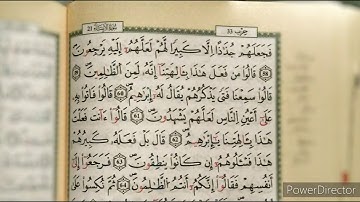 سورة الأنبياء 21
جزء ١٧ 33
فَجَعَلَهُمْ جُذَاذًا إِلَّا كَبِيرًا لَّهُمْ لَعَلَّهُمْ إِلَيْهِ يَرْجِعُونَ
58 قَالُوا مَن فَعَلَ هَٰذَا بِآلِهَتِنَا إِنَّهُ لَمِنَ الظَّالِمِينَ 59
قَالُوا سَمِعْنَا فَتًى يَذْكُرُهُمْ يُقَالُ لَهُ إِبْرَٰهِيمُ 60 قَالُوا فَأْتُوا بِهِ
عَلَىٰ أَعْيُنِ النَّاسِ لَعَلَّهُمْ يَشْهَدُونَ 61 قَالُوا ءَأَنتَ فَعَلْتَ
هَٰذَا بِآلِهَتِنَا يَٰإِبْرَٰهِيمُ 62 قَالَ بَلْ فَعَلَهُ كَبِيرُهُمْ
هَٰذَا فَسْـَٔلُوهُمْ إِن كَانُوا يَنطِقُونَ 63 فَرَجَعُوا إِلَىٰ
أَنفُسِهِمْ فَقَالُوا إِنَّكُمْ أَنتُمُ الظَّالِمُونَ 64 ثُمَّ نُكِسُوا عَلَىٰ
PowerDirector